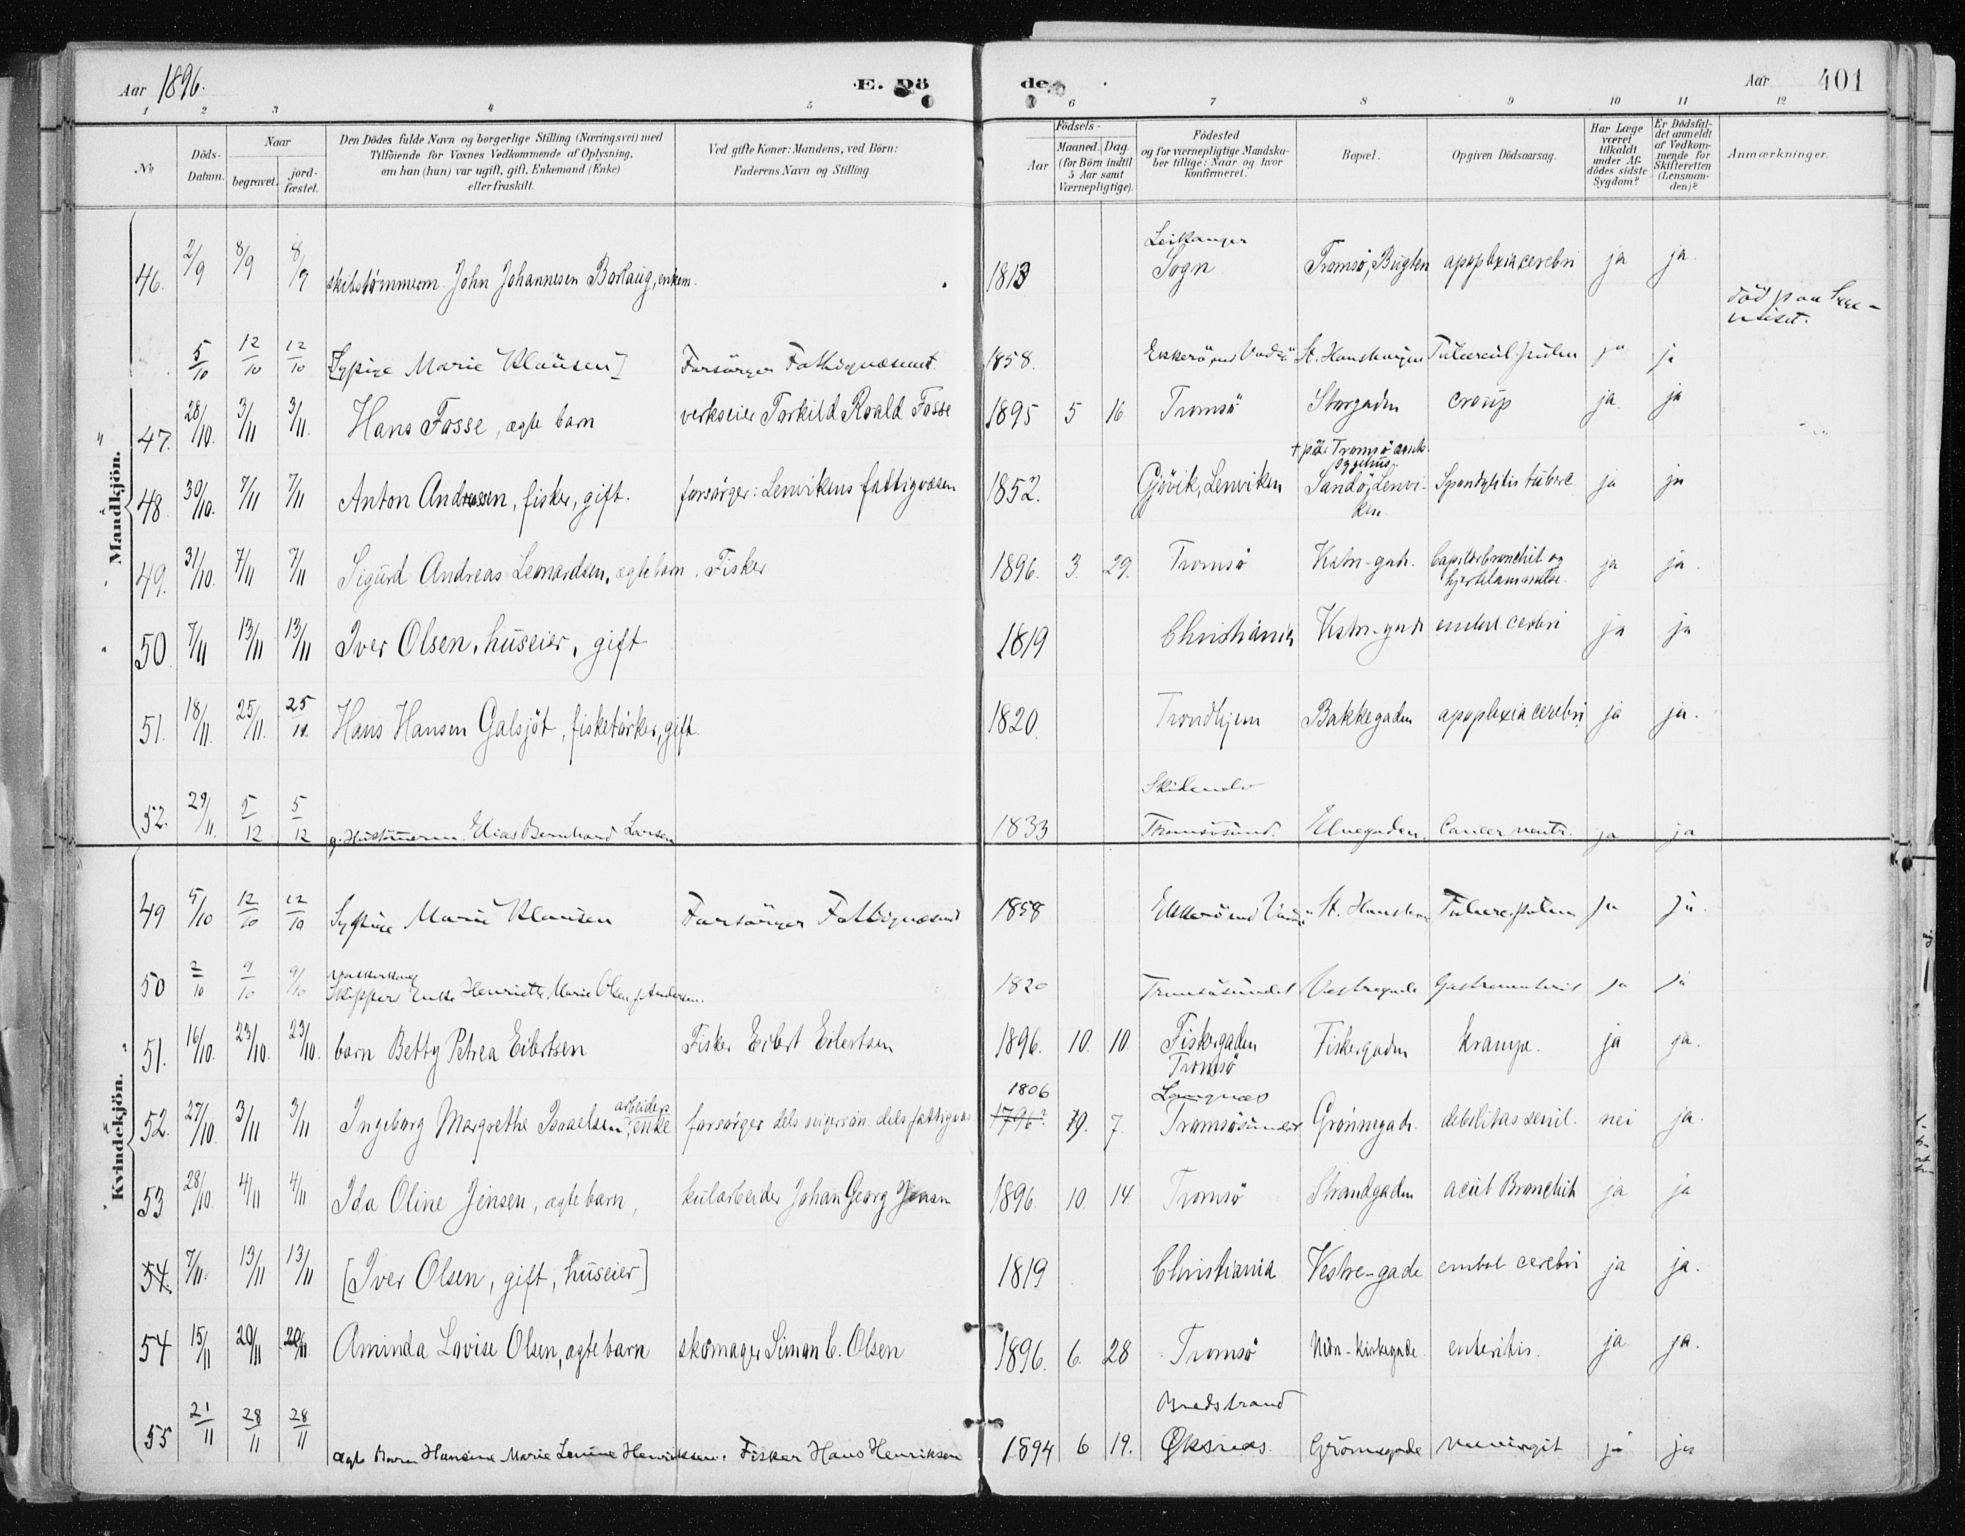 Aar 1896. E. Döde. Aar 401
1 2 3 4 5 6 7 8 9 10 11 12
No. Döds-Datum. Naar begravet. jordfæstet. Den Dödes fulde Navn og borgerlige Stilling (Næringsvei) med Tilföiende for Voxnes Vedkommende af Oplysning, om han (hun) var ugift, gift, Enkemand (Enke) eller fraskilt. Ved gifte Koner: Mandens, ved Börn: Faderens Navn og Stilling. Födsels- Aar Maaned. Dag. (for Börn indtil 5 Aar samt Værnepligtige). Födested og for værnepligtige Mandskaber tillige: Naar og hvor konfirmeret. Bopæl. Opgiven Dödsaarsag. Har Læge været tilkaldt under Afdödes sidste Sygdom? Er Dödsfaldet anmeldt af Vedkommende for Skifteretten (Lensmanden)? Anmærkninger.
Mandkjön.
46. 2/9 8/9 8/9 skibstømmerm. John Johannesen Borlaug, enkem. 1813 Leikanger Sogn Tromsø, Bugten apoplexia cerebri ja ja.
5/10 12/10 12/10 [Sypige Marie Klausen] Forsörger Fattigvæsenet. 1858. St. Hanshaugen Tubercul. pulm ja ja
47. 28/10. 3/11 3/11. Hans Fosse, ægte barn verkseier Torkild Roald Fosse 1895 5 16. Tromsø Storgaden croup ja. ja
48. 30/10. 7/11 7/11 Anton Andresen, fisker, gift. forsørger: Lenvikens fattigvæsen 1852. Gjövik, Lenviken † paa Tromsø amts sygehus. Sandø, Lenviken. Spondylitis tuberc ja ja
49. 31/10. 7/11 7/11 Sigurd Andreas Leonardsen, ægte barn. Fisker 1896. 3. 29. Tromsø Vestre-gade. Capillærbronchit og hjertelammelse. ja ja.
50 7/11 13/11 13/11 Iver Olsen, huseier, gift 1819 Christiania Vestre-gade embol cerebri ja ja
51. 18/11. 25/11. 25/11. Hans Hansen Galsjöt, fisketørker, gift. 1820. Trondhjem Bakkegaden apoplexia cerebri ja ja.
52. 29/11. 5/12 5/12 g. Hustømerm. Elias Bernhard Larsen 1833 Tromsøsund. Elvegaden. Cancer ventr. ja ja
Kvindekjön.
49 5/10 12/10 12/10 Sypige Marie Klausen Forsörger Fattigvæsenet 1858 St. Hanshaug Tuberc. pulm ja ja.
50 2/10 9/10 9/10 Skipper Enke Henriette Marie Olsen f. Andersen. 1820 Tromsøsundet Vestregade Gastroenterit ja ja
51. 16/10. 23/10. 23/10. barn Betty Petrea Eilertsen Fisker Eilert Eilertsen 1896. 10. 10. Fiskergaden Tromsø Fiskergaden Krampe. ja ja.
52. 27/10. 3/11 3/11 Ingeborg Margrethe Israelsen, arbeiders enke forsørger dels svigersøn dels fattigvæs. 1806 1796? 19. 7. Langnæs Tromsøsundet Grønnegade. debilitas senil. nei ja.
53 28/10. 4/11 4/11. Ida Oline Jensen, ægte barn, kularbeider Johan Georg Jensen 1896. 10. 14. Tromsø Strandgaden acut Bronchit ja ja
54. 7/11. 13/11 13/11 [Iver Olsen, gift, huseier] 1819 Christiania Vestre-gade embol cerebri ja ja.
54 15/11 20/11 20/11. Aminda Lovise Olsen, ægte barn skomager Simon C. Olsen 1896. 6. 28 Tromsø Nedre-Kirkegade. enteritis. ja. ja.
55 21/11 28/11 28/11 ægte Barn Hansine Marie Lenine Henriksen. Fisker Hans Henriksen 1894 6 19. Bredstrand Øksnes. Grønnegade meningit ja ja